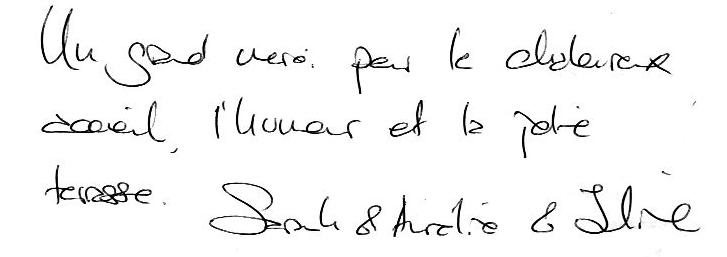 Un grand merci pour le chaleureux
accueil, l'humour et la jolie
terrasse. Sarah & Aurélie &